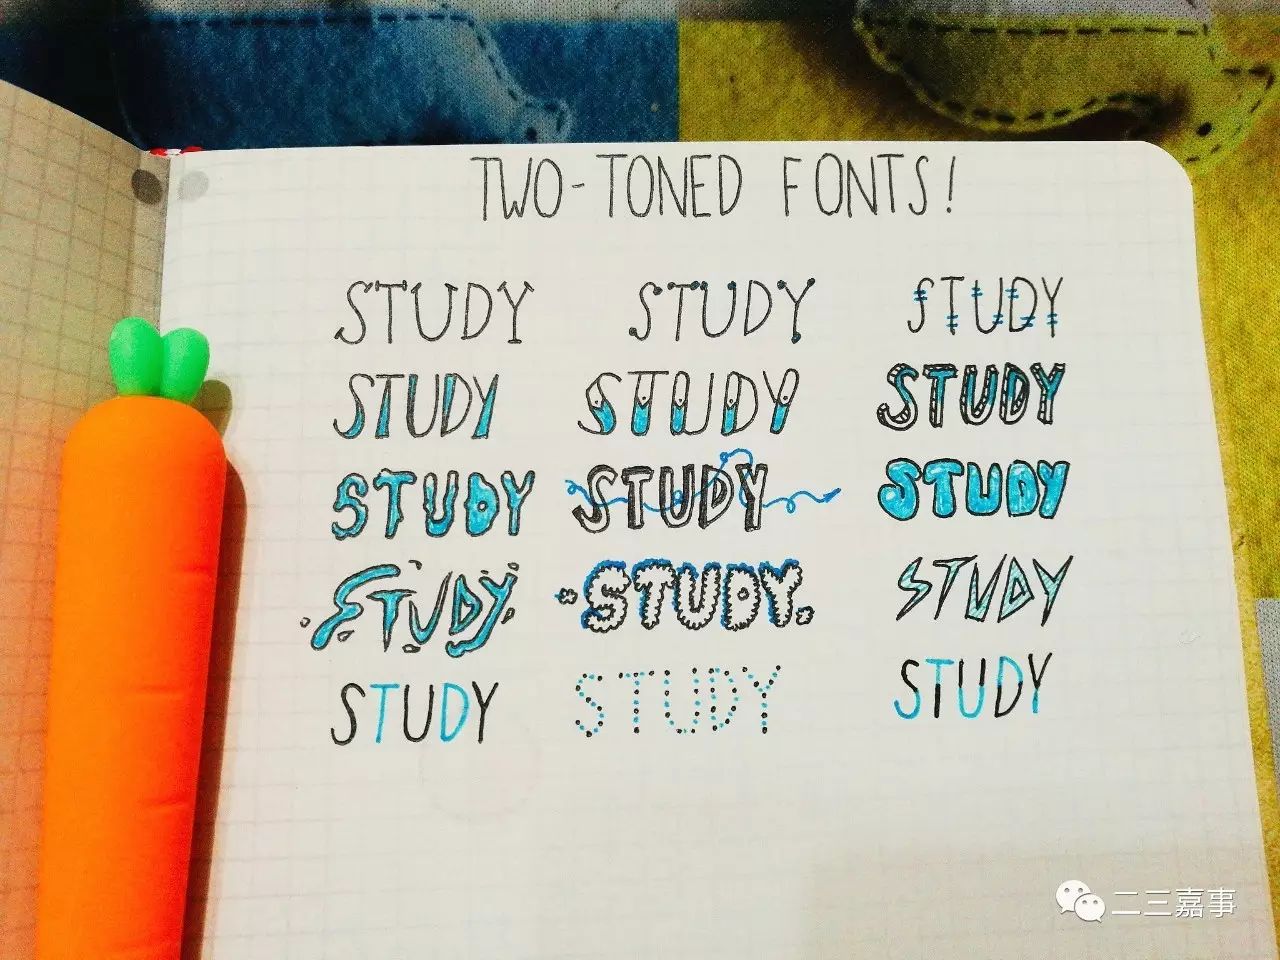 TWO-TONED FONTS!
STUDY STUDY STUDY
STUDY STUDY STUDY
STUDY STUDY STUDY
STUDY STUDY. STUDY
STUDY STUDY STUDY
二三嘉事